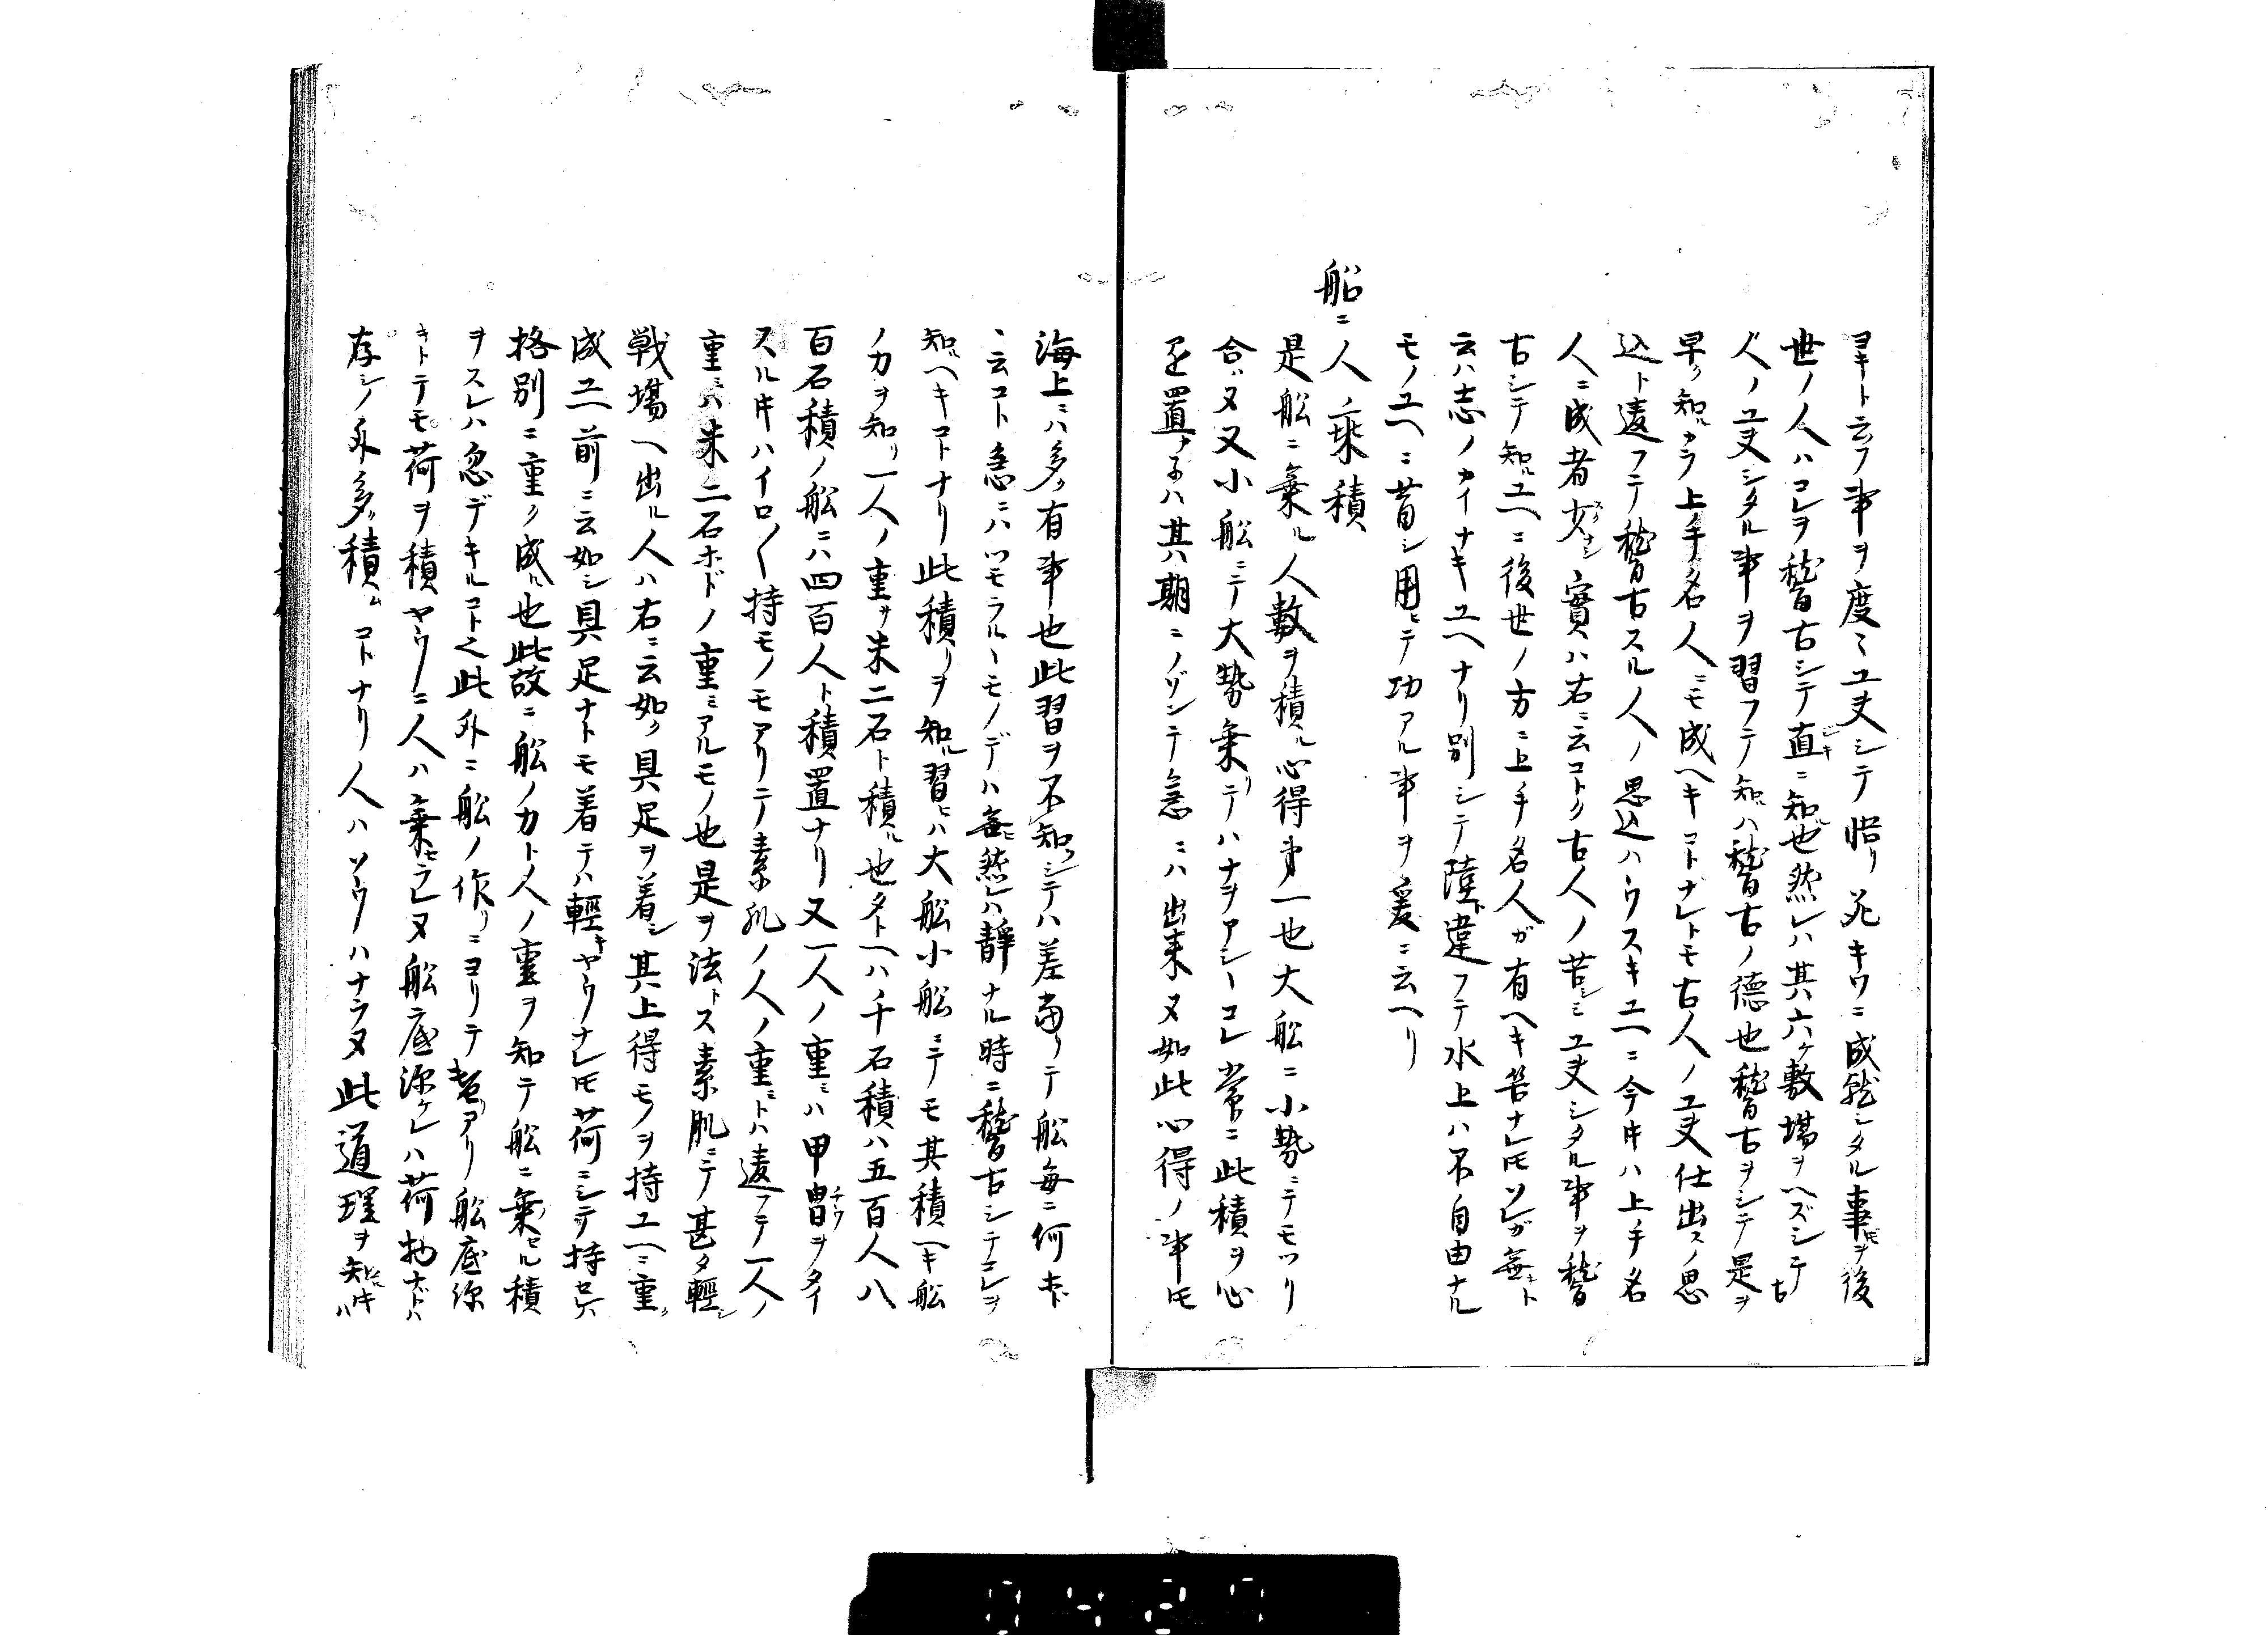 ヨキト云フ事ヲ度々工夫シテ悟リ死キワニ成就シタル事ヲ後
世ノ人ハコレヲ稽古シテ直ニ知ル也然レハ其六ケ敷場ヲヘズシテ古
人ノ工夫シタル事ヲ習フテ知ルハ稽古ノ徳也稽古ヲシテ是ヲ
早ク知ルカラ上手名人ニモ成ヘキコトナレトモ古人ノ工夫仕出スノ思
込ト違フテ稽古スル人ノ思込ハウスキユヘニ今時ハ上手名
人ニ成者少ナシ實ハ右ニ云コトク古人ノ苦シミ工夫シタル事ヲ稽
古シテ知ルユヘニ後世ノ方ニ上手名人ガ有ヘキ筈ナレ𪜈ソレガ無キト
云ハ志ノカイナキユヘナリ別シテ陸ト違フテ水上ハ不自由ナル
モノユヘニ昔シ用ヒテ功アル事ヲ爰ニ云ヘリ
船ニ人乗積
是船ニ乗ル人数ヲ積ル心得第一也大船ニ小勢ニテモツリ
合ハヌ又小船ニテ大勢乗リテハナヲアシヽコレ常ニ此積ヲ心
得置ナ子ハ其期ニノゾンテ急ニハ出来ヌ如此心得ノ事𪜈
海上ニハ多ク有事也此習ヲ不知シテハ差當リテ船毎ニ何ホド
ヽ云コト急ニハツモラルヽモノデハ無シ然レハ静ナル時ニ稽古シテコレヲ
知ルヘキコトナリ此積リヲ知ル習ヒハ大船小船ニテモ其積ヘキ船
ノ力ヲ知リ一人ノ重サ米二石ト積ル也タトヘハ千石積ハ五百人八
百石積ノ船ニハ四百人ト積置ナリ又一人ノ重ミハ甲冑ヲタイ
スル時ハイロ〱持モノモアリテ素肌ノ人ノ重ミトハ違フテ一人ノ
重ミハ米二石ホドノ重ミアルモノ也是ヲ法トス素肌ニテ甚タ輕シ
戦場ヘ出ル人ハ右ニ云如ク具足ヲ着シ其上得モノヲ持ユヘニ重ク
成ユヘ前ニ云如シ具足ナトモ着テハ輕キヤウナレ𪜈荷ニシテ持セハ
格別ニ重ク成ル也此故ニ船ノ力ト人ノ重ヲ知テ船ニ乗セル積
ヲスレハ忽デキルコト也此外ニ船ノ作リニヨリテ差アリ船底深
キトテモ荷ヲ積ヤウニ人ハ乗セラレヌ船底深ケレハ荷物ナドハ
存シノ外多ク積ムコトナリ人ハソウハナラヌ此道理ヲ知ルヘキハ